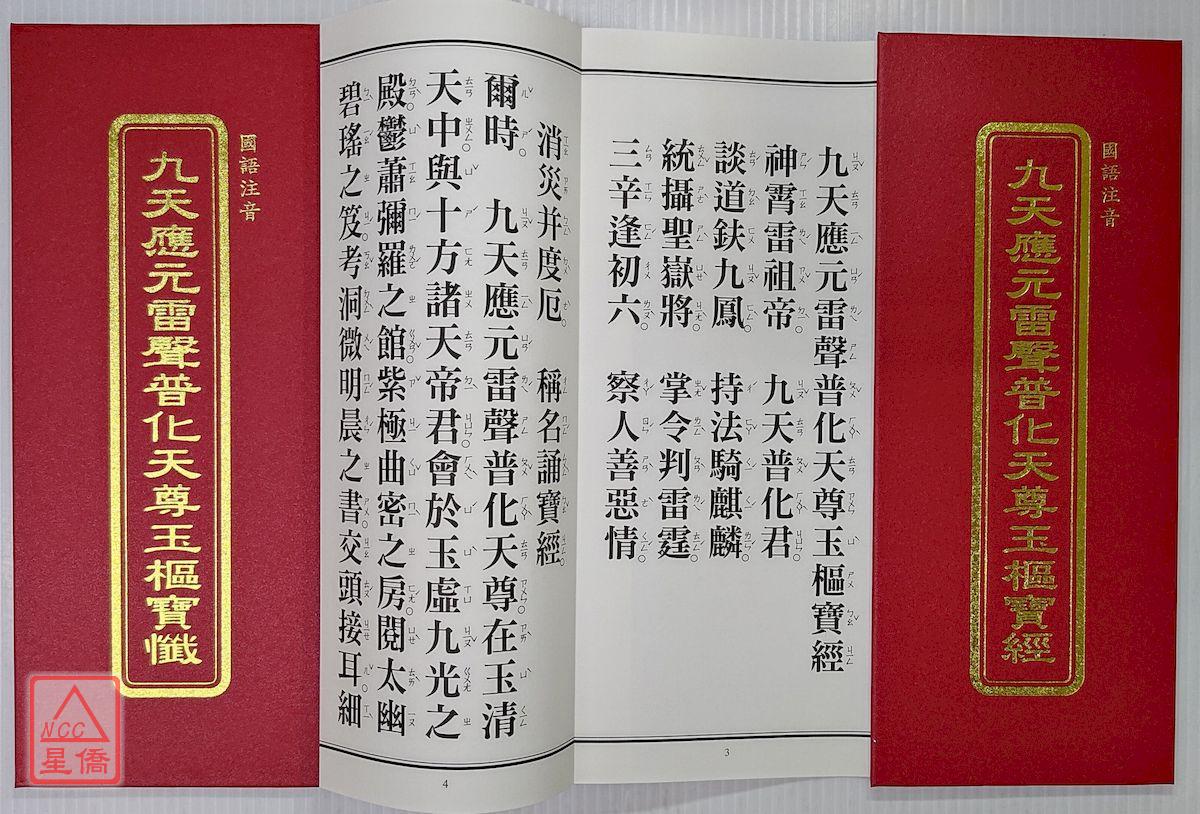 國語注音
九天應元雷聲普化天尊玉樞寶經
九天應元雷聲普化天尊玉樞寶經
神霄雷祖帝。 九天普化君。
談道鈌九鳳 持法騎麒麟。
統攝聖嶽將 掌令判雷霆。
三辛逢初六。 察人善惡情。
3
消災并度厄。 稱名誦寶經。
爾時。 九天應元雷聲普化天尊。在玉清
天中。與十方諸天帝君。會於玉虛九光之
殿。鬱蕭彌羅之館。紫極曲密之房。閱太幽
碧瑤之笈。考洞微明晨之書。交頭接耳。細
4
國語注音
九天應元雷聲普化天尊玉樞寶懺
NCC
星僑